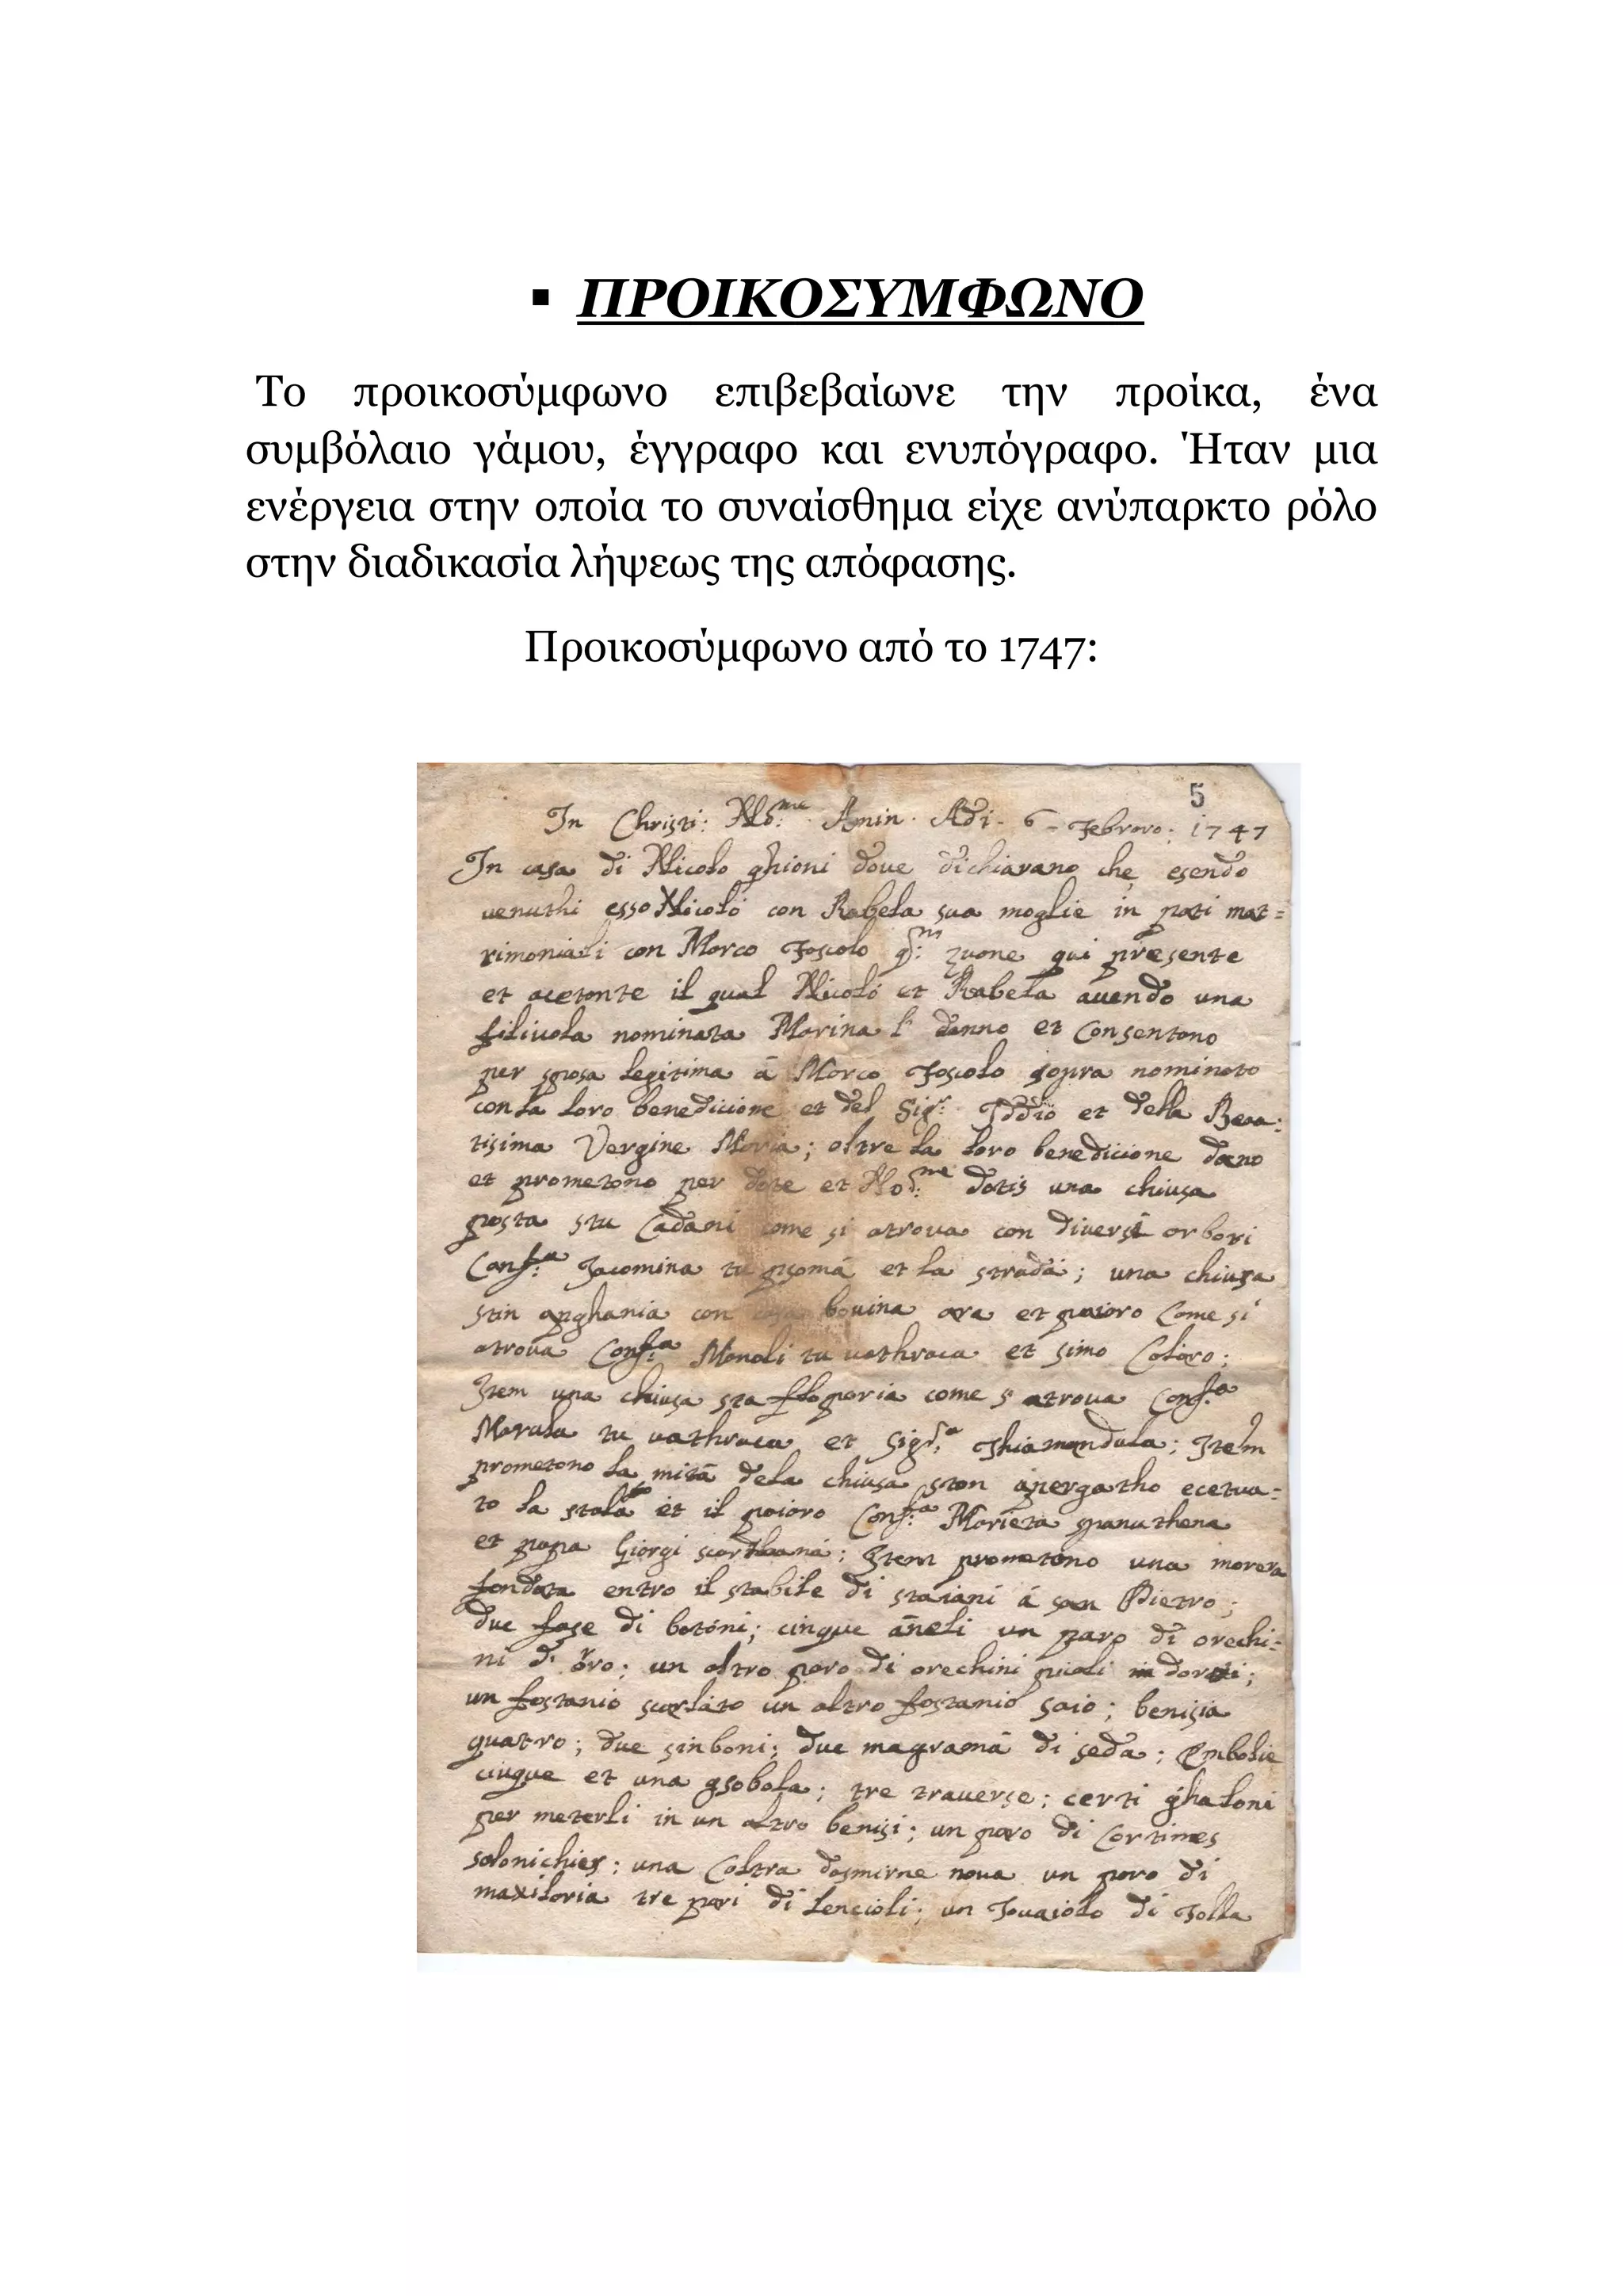 ▪ ΠΡΟΙΚΟΣΥΜΦΩΝΟ
Το προικοσύμφωνο επιβεβαίωνε την προίκα, ένα
συμβόλαιο γάμου, έγγραφο και ενυπόγραφο. Ήταν μια
ενέργεια στην οποία το συναίσθημα είχε ανύπαρκτο ρόλο
στην διαδικασία λήψεως της απόφασης.
Προικοσύμφωνο από το 1747:
5
In Christi: Amin. Adi. 6 - Febraro: 1747
In casa di Nicolo ghioni doue dichiarano che esendo
uenuthi esso Nicoló con Rabela sua moglie in pati mat=
rimoniali con Marco Foscolo zuone qui presente
et acetante il qual Nicoló et Rabela auendo una
filiuola nominata Marina danno et Consentono
per sposa legitima á Marco Foscolo sopra nominato
con la loro benedicione et del Sigr: Iddio et della Bea:
tisima Vergine Maria; oltre la loro benedicione dano
et prometono per dote et dotis una chiusa
posta stu Cadani come si atroua con diuersi arbori
Jacomina tu psomá et la strada; una chiusa
stin anghania con bouina ara et paioro Come si
atroua Manoli tu uathraca et simo
Item una chiusa sta floparia come atroua
Marula tu uathraca et Thiamandula; Item
prometono la mitá dela chiusa ston apergatho ecetua=
to la stala et il paioro Marieta spanuthena
et papa Giorgi; Item prometono una morera
fondata entro il stabile di staiani á san Pietro;
due fase di botóni; cinque áneli un paro di orechi=
ni d' óro; un altro paro di orechini picoli
un fostanio scarlato un altro fostanio saio; benisia
quatro; due sinboni; due magramá di seda; Embolie
cinque et una psobola; tre trauerse; certi ghaloni
per meterli in un altro benisi; un paro di Cortines
salonichies; una Coltra dasmirne noua un paro di
maxiloria tre pari di Lencióli; un Touaiolo di Tolla